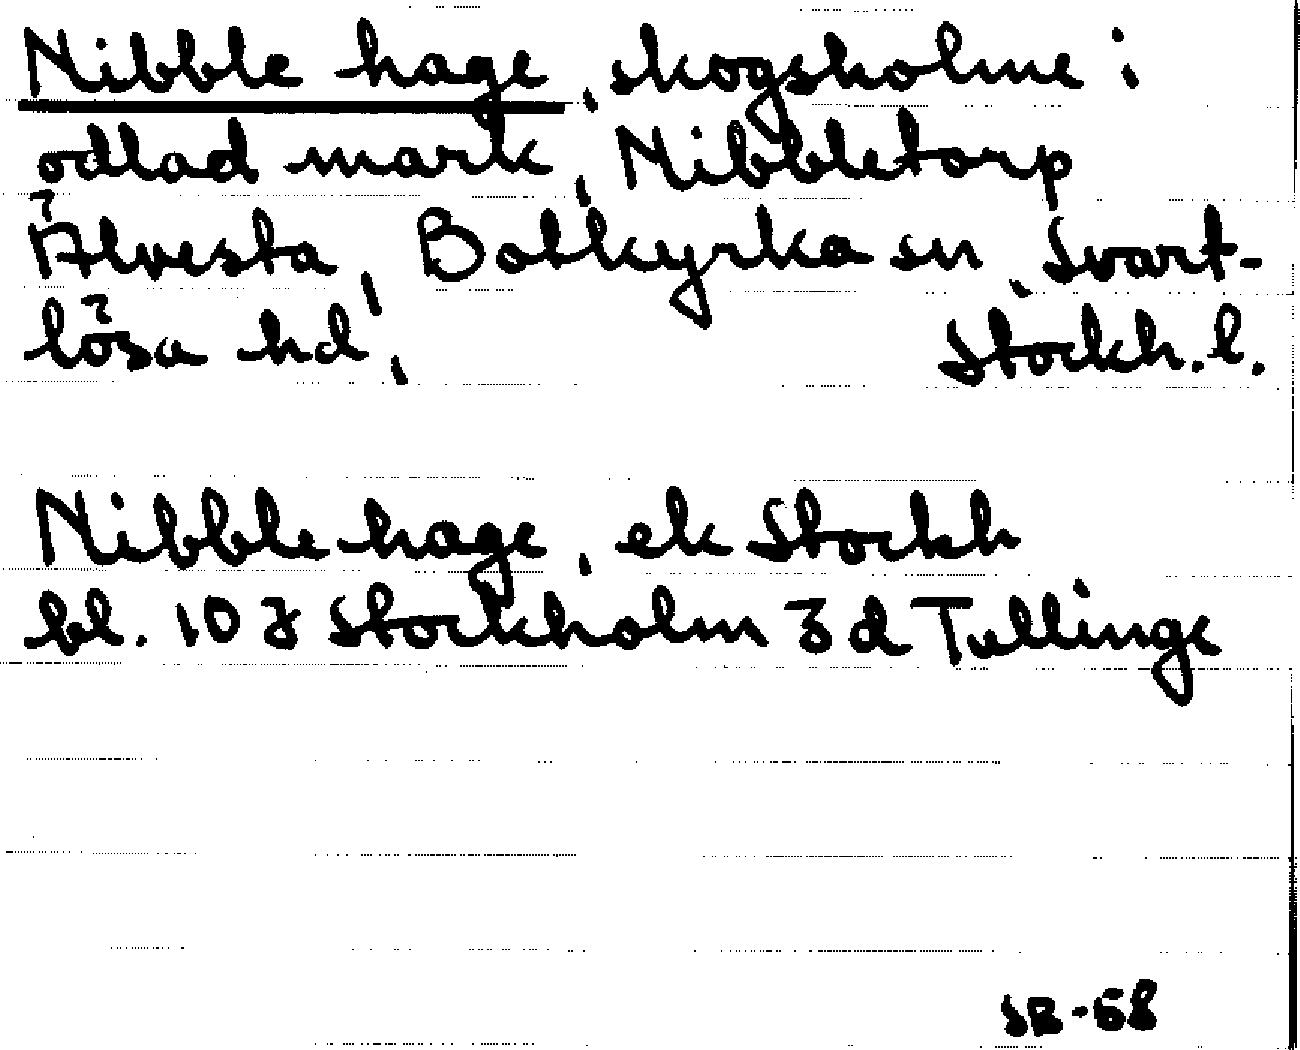 Nibble hage, skogsholme i
odlad mark, Nibbletorp
Älvesta, Botkyrka sn, Svart-
lösa hd, Stockh. l.
Nibble hage, ek Stockh
bl. 10 J Stockholm 3 d Tullinge
SB-68